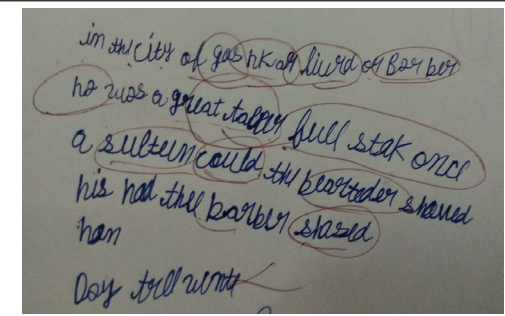 in thi city of gas hk or liurd or Barber
ho was a great talper full stak once
a sulteun could the bearteder shaved
his had the barber shazed
han
Day trell